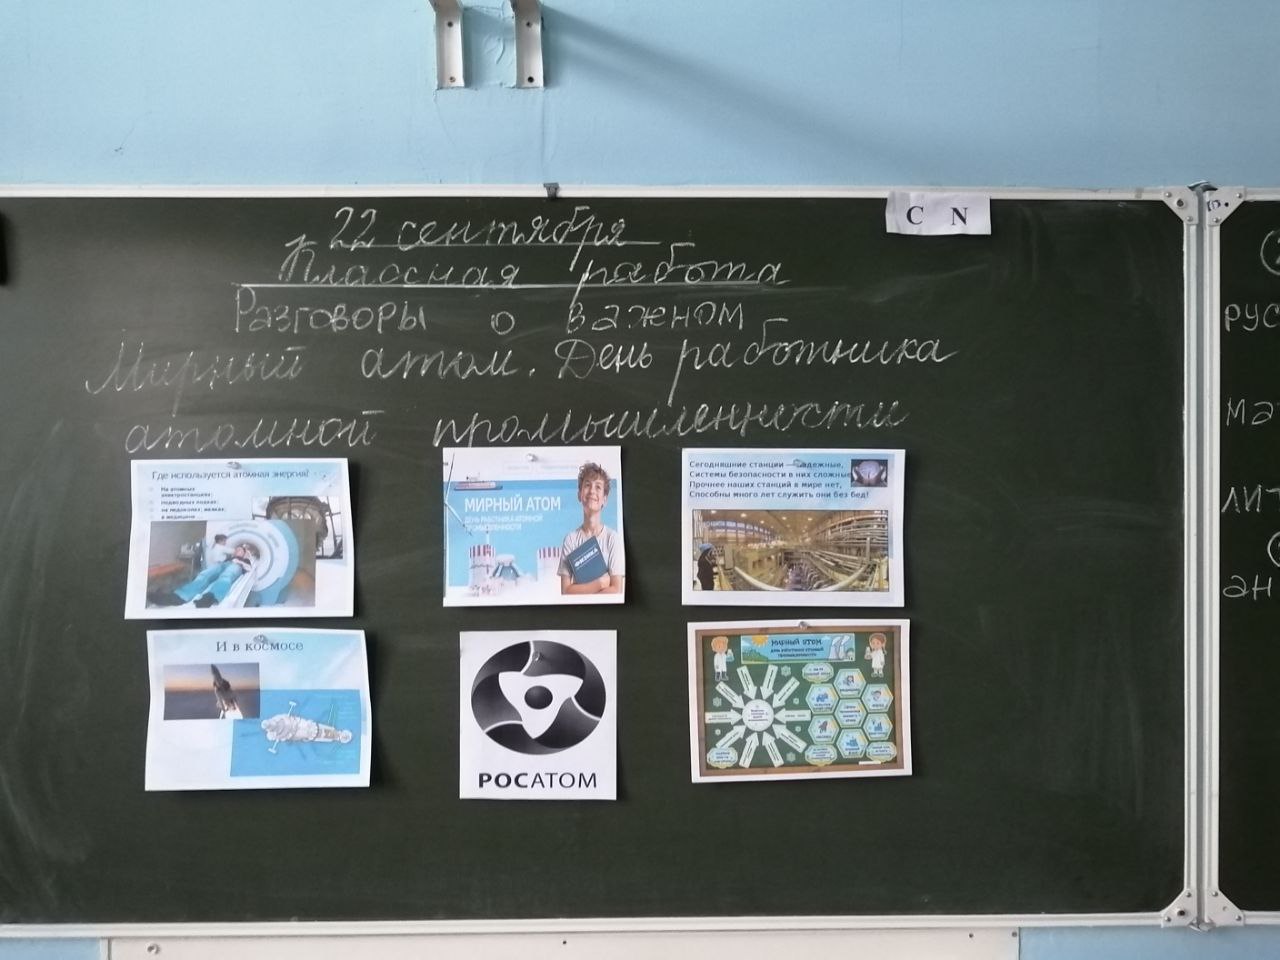 22 сентября
C N
Классная работа
Разговоры о важном
Мирный атом. День работника
атомной промышленности
Где используется атомная энергия?
На атомных
электростанциях;
подводных лодках;
на ледоколах;
в медицине
МИРНЫЙ АТОМ
ДЕНЬ РАБОТНИКА АТОМНОЙ
ПРОМЫШЛЕННОСТИ
ФИЗИКА
Сегодняшние станции — надежные,
Системы безопасности в них сложные
Прочнее наших станций в мире нет,
Способны много лет служить они без бед!
И в космосе
РОСАТОМ
МИРНЫЙ АТОМ
ДЕНЬ РАБОТНИКА АТОМНОЙ
ПРОМЫШЛЕННОСТИ
рус
ма
лит
ан